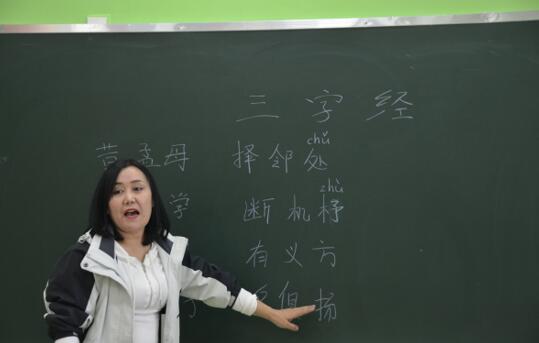 三字经
chǔ
昔孟母 择邻处
zhù
学 断机杼
有义方
俱扬